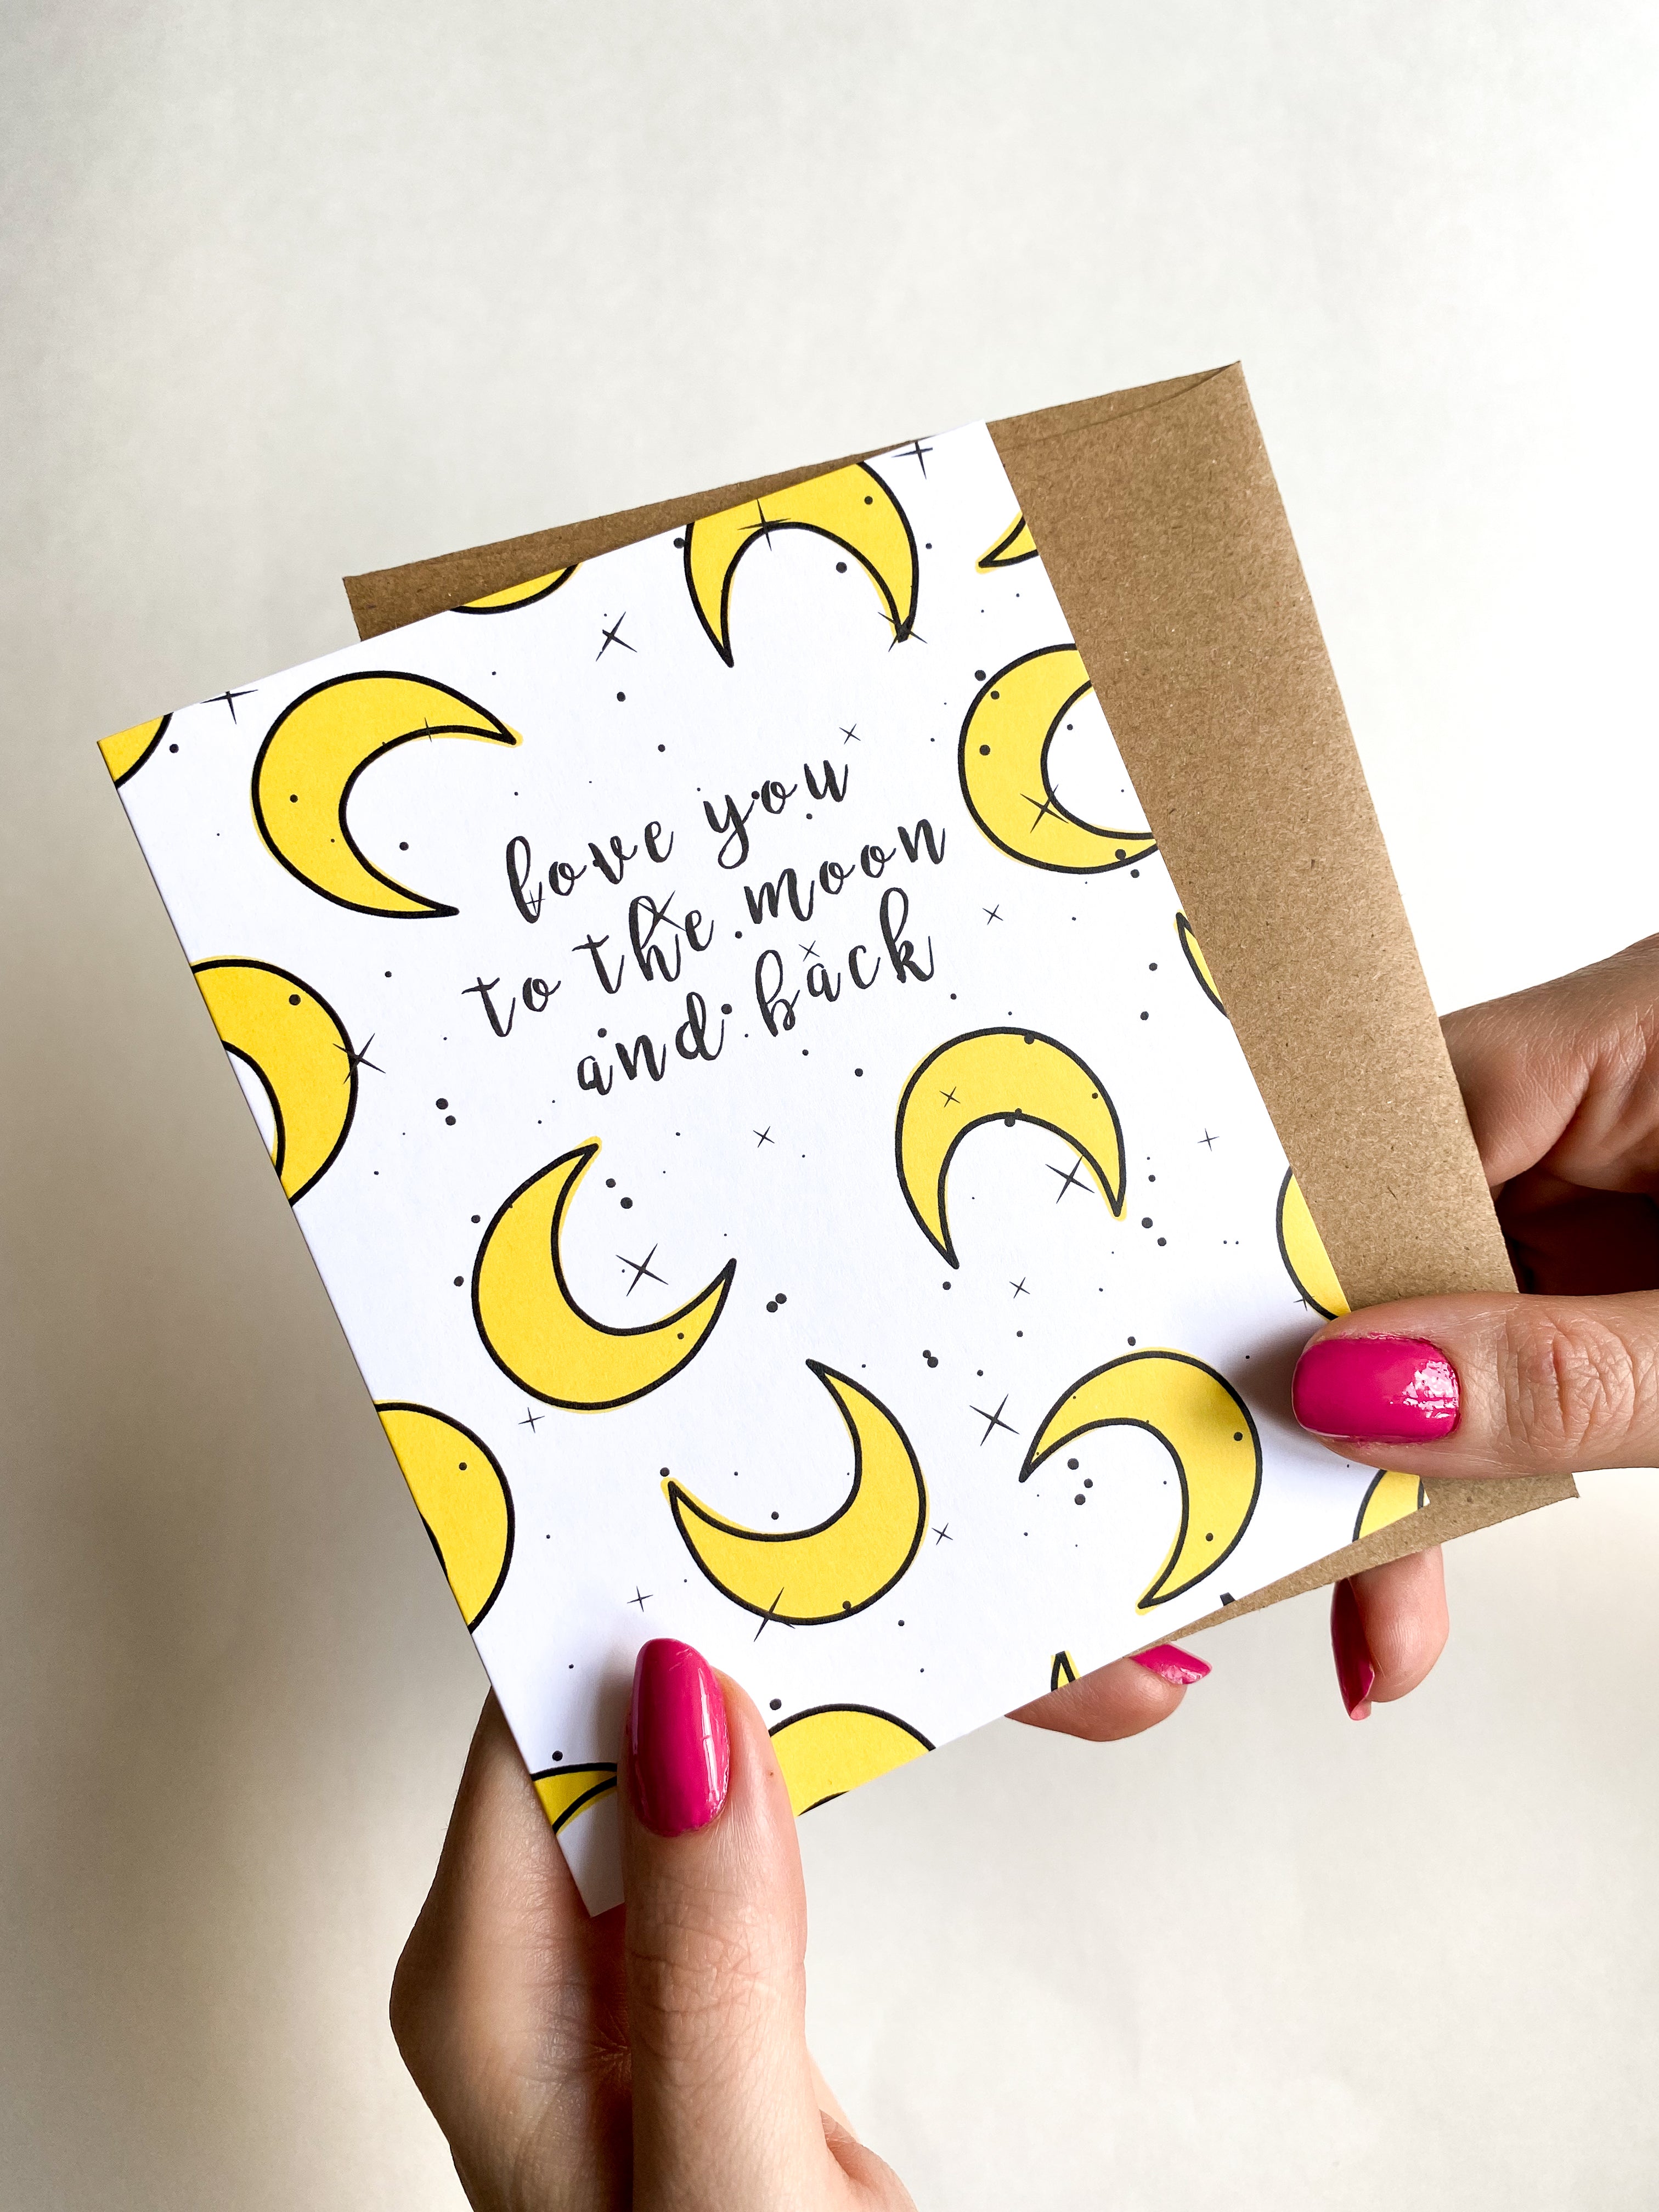 love you
to the moon
and back